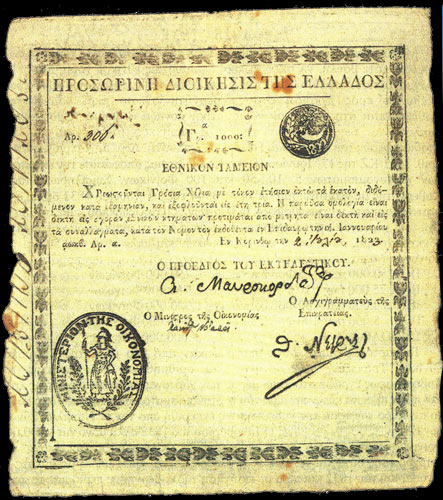 ΠΡΟΣΩΡΙΝΗ ΔΙΟΙΚΗΣΙΣ ΤΗΣ ΕΛΛΑΔΟΣ
Αρ.
Γρ. 1000:
ΕΘΝΙΚΟΝ ΤΑΜΕΙΟΝ
Χρεωστοῦνται Γρόσια Χίλια μὲ τόκον ἐτήσιον ὀκτὼ τὰ ἑκατὸν, διδό-
μενον κατὰ ἑξαμηνίαν, καὶ ἐξοφλοῦνται εἰς ἔτη τρία. Ἡ παροῦσα ὁμολογία εἶναι
δεκτὴ εἰς ἀγορὰν ἐθνικῶν κτημάτων προτιμᾶται εἶναι δεκτὴ καὶ εἰς
τὰ συναλλάγματα, κατὰ τὸν Νόμον τὸν ἐκδοθέντα ἐν Ἐπιδαύρῳ τῇ Ἰαννουαρίου
αωκβ. Αρ. α. Ἐν Κορίνθῳ τὴν 1822
Ο ΠΡΟΕΔΡΟΣ ΤΟΥ ΕΚΤΕΛΕΣΤΙΚΟΥ.
Α. Μαυροκορδάτος
Ὁ Μινίστρος τῆς Οἰκονομίας
Ὁ Ἀρχιγραμματεὺς τῆς
Ἐπικρατείας.
Θ. Νέγρης
ΜΙΝΙΣΤΕΡΙΟΝ ΤΗΣ ΟΙΚΟΝΟΜΙΑΣ